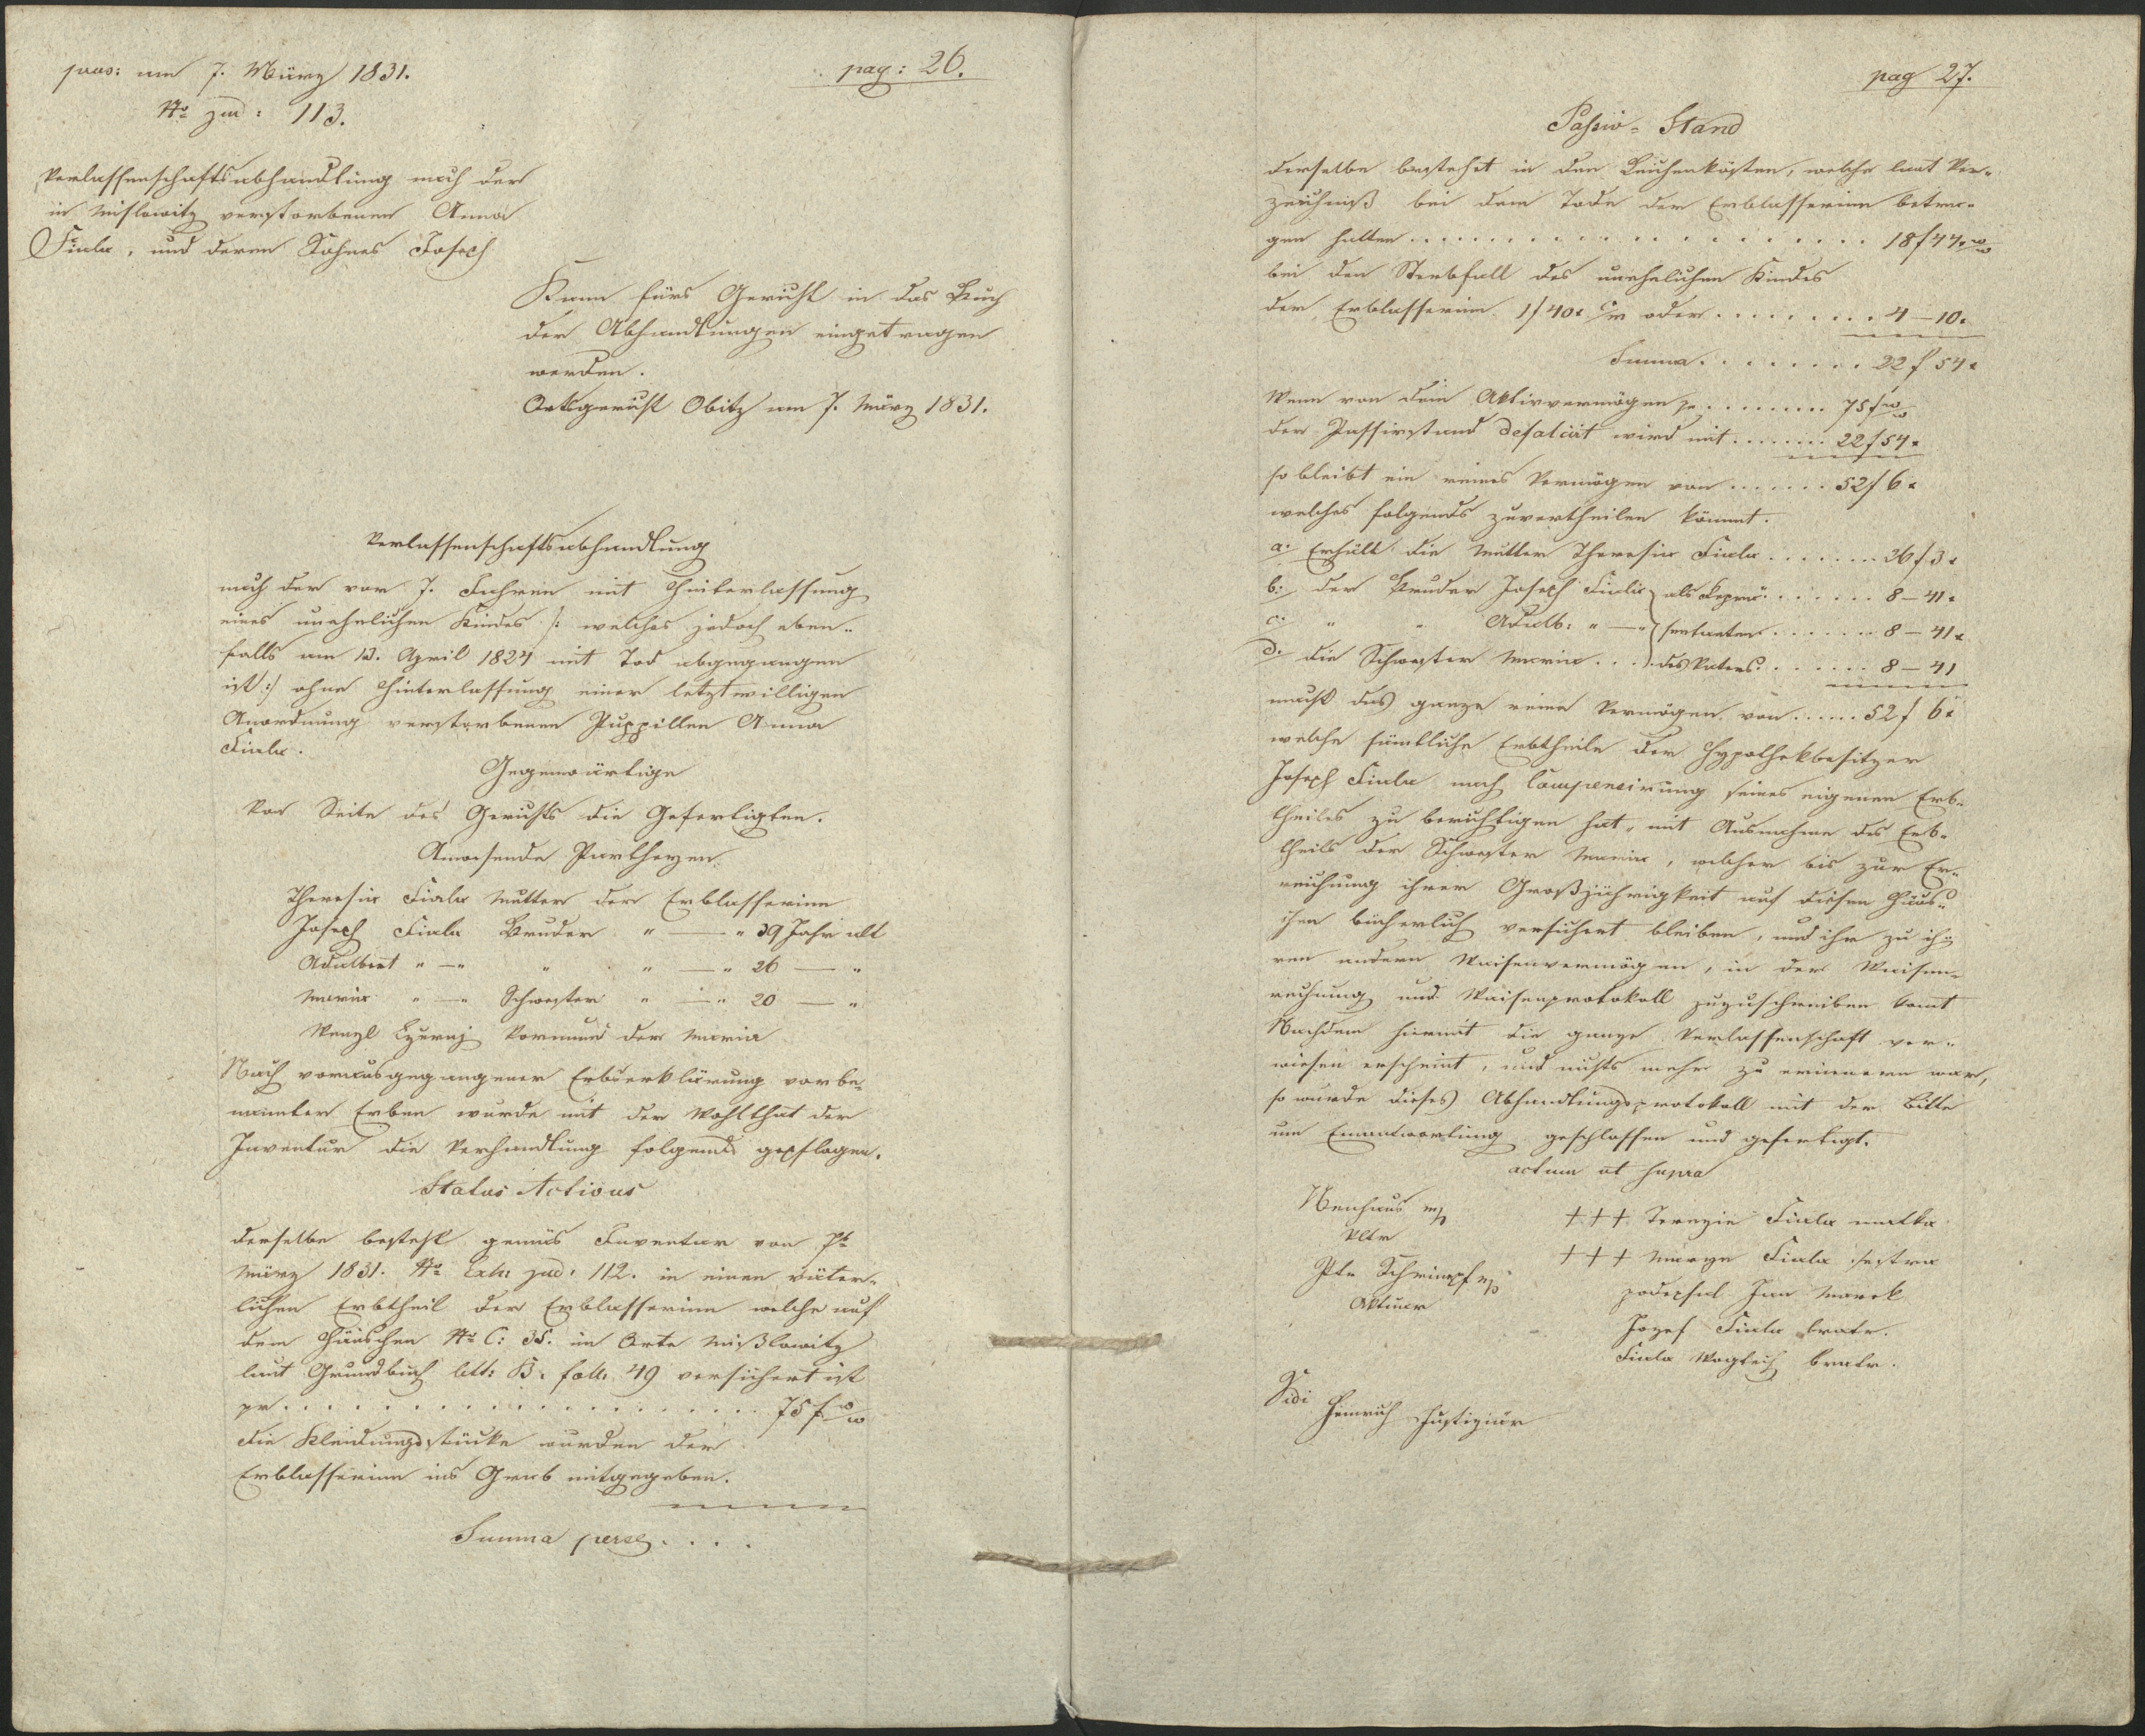 praes: am 7. März 1831.
No jud: 113.
pag: 26.
Verlassenschaftsabhandlung nach der
in Mislowitz verstorbenen Anna
Fiala, und deren Sohnes Joseph
Kann fürs Gericht in das Buch
der Abhandlungen eingetragen
werden.
Ortsgericht Obitz am 7. März 1831.
Verlassenschaftsabhandlung
nach der vor 7. Jahren mit Hinterlassung
eines unehelichen Kindes /: welches jedoch eben-
falls am 13. April 1824 mit Tod abgegangen
ist :/ ohne Hinterlassung einer letztwilligen
Anordnung verstorbenen Puppillen Anna
Fiala.
Gegenwärtige
Von Seite des Gerichts die Gefertigten.
Anwesende Partheyen
Theresia Fiala Mutter der Erblasserinn
Joseph Fiala Bruder " — " 39 Jahr alt
Adalbert " — " " " — " 26 — "
Maria " — " Schwester " — " 20 — "
Wenzl Vormund der Maria
Nach vorausgegangener Erbserklärung vorbe-
nannter Erben wurde mit der Wohlthat der
Inventur die Verhandlung folgends gepflogen.
Status Activus
derselbe besteht gemäs Inventar von 7t
März 1831. No Exh: jud: 112. in einen väter-
lichen Erbtheil der Erblasserinn welche auf
dem Häuschen No C: 35. im Orte Mißlowitz
laut Grundbuch litt: B. foll. 49 versichert ist
pr . . . . . . . . . . . . . . . . 75 f ww
die Kleidungsstücke wurden der
Erblasserinn ins Grab mitgegeben.
Summa per se . . . .
pag 27.
Passiv-Stand
derselbe bestehet in den Leichenkösten, welche laut Ver-
zeichniß bei dem Tode der Erblasserinn betra-
gen hatten . . . . . . . . . . . . . . 18 f 44 x ww
bei den Sterbfall des unehelichen Kindes
der Erblasserinn 1 f 40 x CM oder . . . . . . . . 4 — 10.
Summa . . . . . . . . 22 f 54 x
Wenn von dem Aktivvermögen pr . . . . . . . . 75 f ww
der Passivstand defalcirt wird mit . . . . . . 22 f 54 x
so bleibt ein reines Vermögen von . . . . . . 52 f 6 x
welches folgends zuvertheilen kömmt.
a. Erhält die Mutter Theresia Fiala . . . . . . 26 f 3 x
b. der Bruder Joseph Fiala } als Reprä- . . . . . . 8 — 41 x
c. " " Adalb: " — " } sentanten . . . . . . 8 — 41 x
d. die Schwester Maria . . . } des Vaters . . . . . . 8 — 41
macht das ganze reine Vermögen von . . . . . 52 f 6 x
welche sämtliche Erbtheile der Hypothekbesitzer
Joseph Fiala nach Compensirung seines eigenen Erb-
theiles zu berichtigen hat, mit Ausnahme des Erb-
theils der Schwester Maria, welcher bis zur Er-
reichung ihrer Großjährigkeit auf diesen Häus-
chen bücherlich versichert bleiben, und ihr zu ih-
ren andern Waisenvermögen, in der Waisen-
rechnung und Waisenprotokoll zuzuschreiben kömt
Nachdem hiermit die ganze Verlassenschaft ver-
wiesen erscheint, und nichts mehr zu erinnern war,
so wurde dieses Abhandlungsprotokoll mit der Bitte
um Einantwortung geschlossen und gefertigt.
actum ut supra
Neuhaus mp
Vltr
Schrimpf mp
Aktuar
+++ Terezie Fiala matka
+++ Marya Fiala sestra
podepsal Jan Marek
Jozef Fiala bratr.
Fiala Wogtěch bratr.
Vidi
Heinrich Justiziär